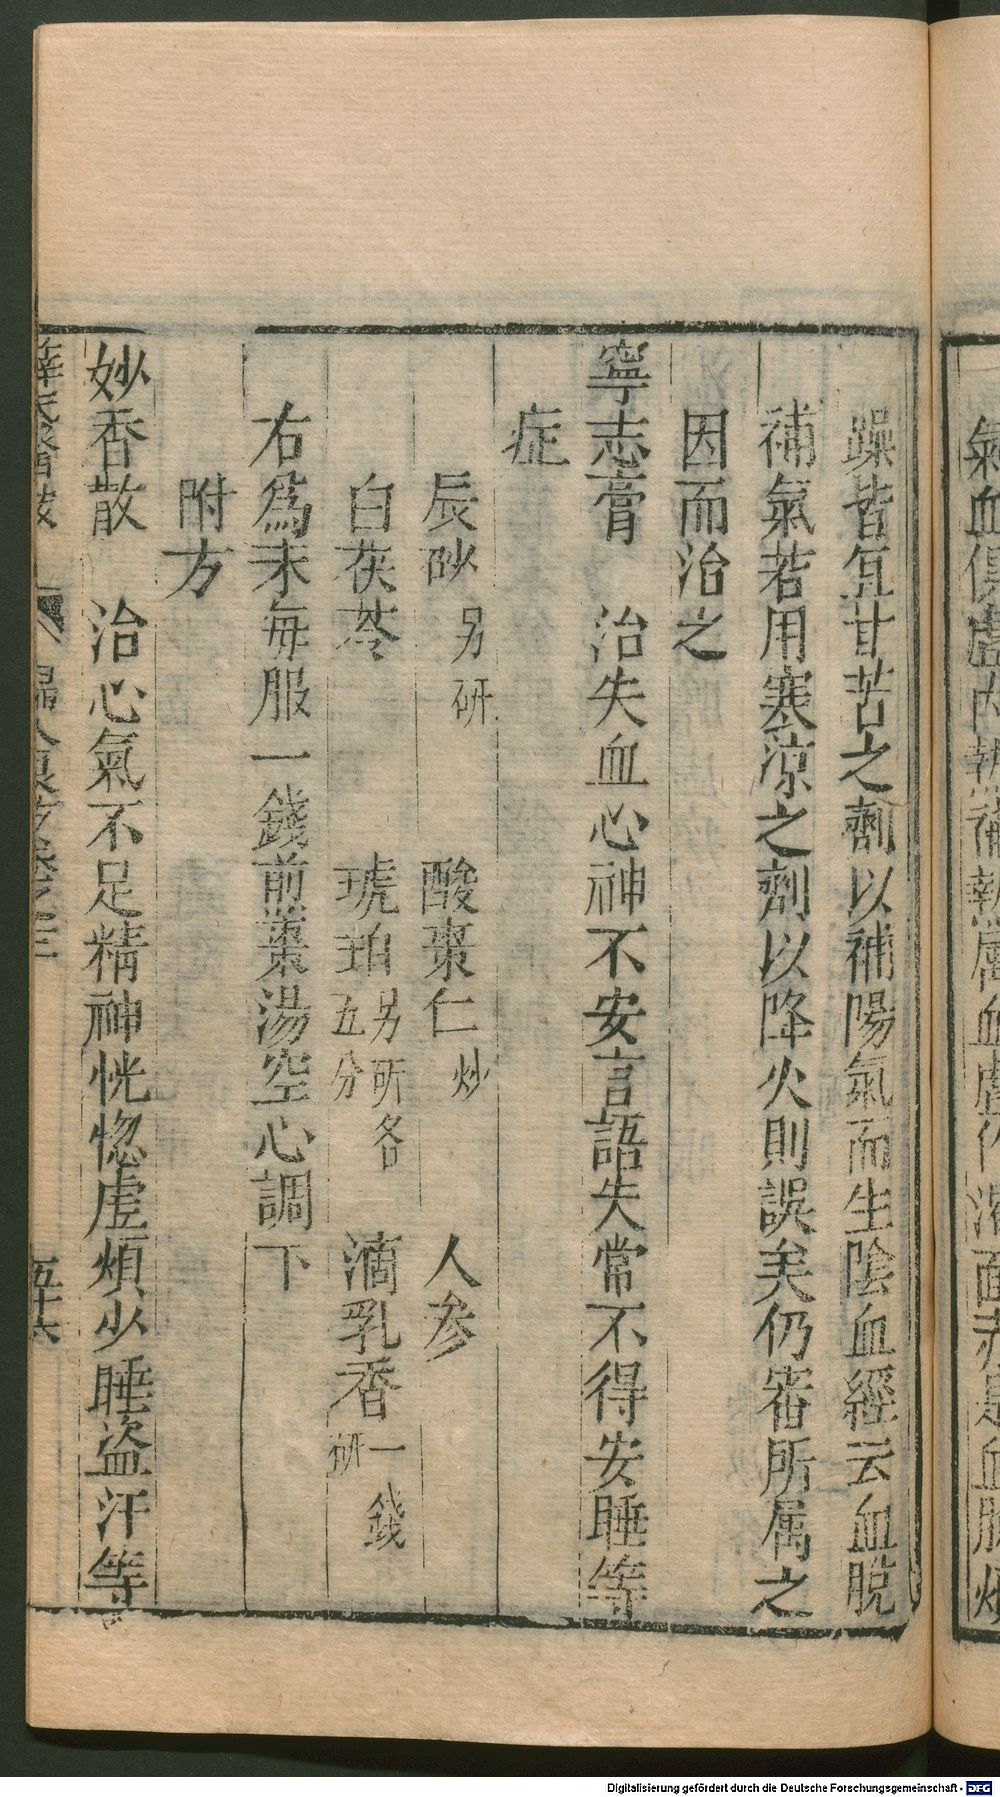 氣血俱虛內熱補
熱屬血虛
面赤是血脫煩
躁皆宜甘苦之劑以補陽氣而生陰血經云血脫
補氣若用寒涼之劑以降火則誤矣仍審所属之
因而治之
寧志膏 治失血心神不安言語失常不得安睡等
症
辰砂 另研 酸棗仁 炒 人参
白茯苓 琥珀 另研各五分 滴乳香 一錢研
右爲末每服一錢煎棗湯空心調下
附方
妙香散 治心氣不足精神恍惚虛煩少睡盜汗等
薛氏醫按 婦人良方卷之三 五十六
Digitalisierung gefördert durch die Deutsche Forschungsgemeinschaft - DFG